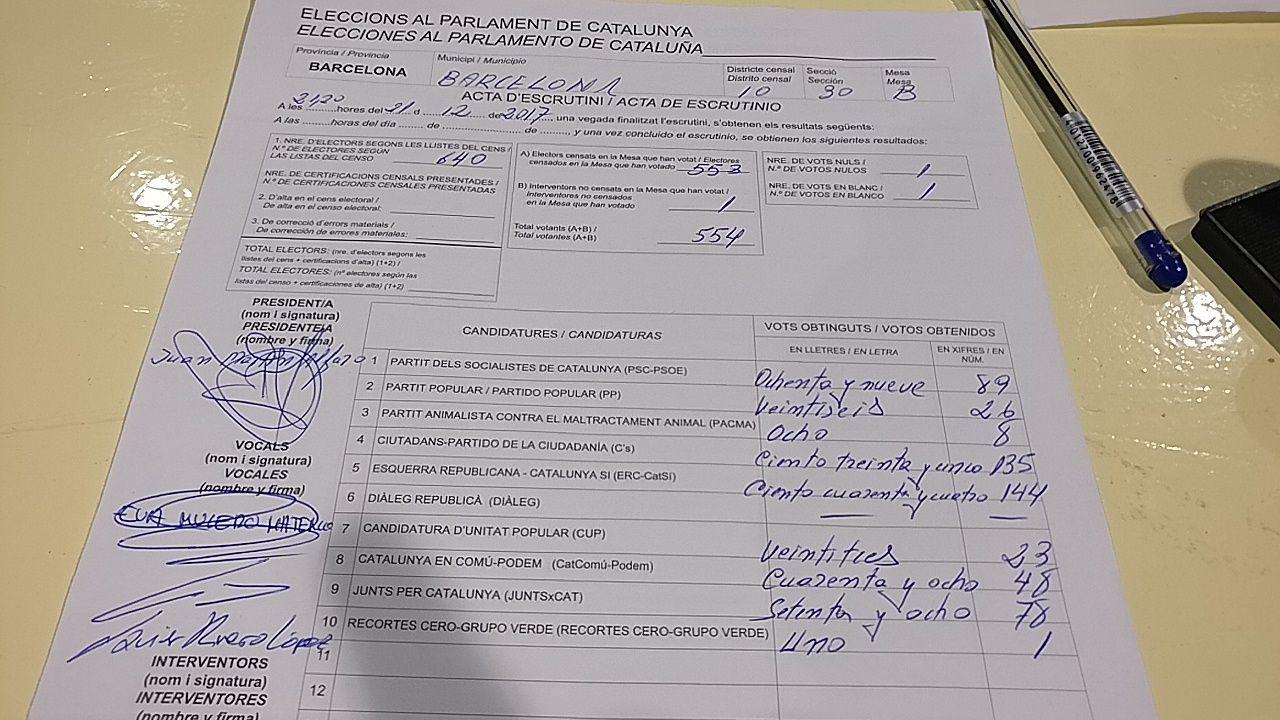 ELECCIONS AL PARLAMENT DE CATALUNYA
ELECCIONES AL PARLAMENTO DE CATALUÑA
Província / Provincia
BARCELONA
Municipi / Municipio
BARCELONA
Districte censal
Distrito censal
10
Secció
Sección
30
Mesa
Mesa
B
ACTA D'ESCRUTINI / ACTA DE ESCRUTINIO
A les 2120 hores del 21 d 12 de 2017, una vegada finalitzat l'escrutini, s'obtenen els resultats següents:
A las ..........horas del día ........ de ........................ de .........., y una vez concluido el escrutinio, se obtienen los siguientes resultados:
1. NRE. D'ELECTORS SEGONS LES LLISTES DEL CENS /
N.º DE ELECTORES SEGÚN
LAS LISTAS DEL CENSO 640
NRE. DE CERTIFICACIONS CENSALS PRESENTADES /
N.º DE CERTIFICACIONES CENSALES PRESENTADAS
2. D'alta en el cens electoral /
De alta en el censo electoral:
3. De correcció d'errors materials /
De corrección de errores materiales:
TOTAL ELECTORS: (nre. d'electors segons les
llistes del cens + certificacions d'alta) (1+2) /
TOTAL ELECTORES: (nº electores según las
listas del censo + certificaciones de alta) (1+2)
A) Electors censats en la Mesa que han votat / Electores
censados en la Mesa que han votado 553
B) Interventors no censats en la Mesa que han votat /
Interventores no censados
en la Mesa que han votado 1
Total votants (A+B) /
Total votantes (A+B) 554
NRE. DE VOTS NULS /
N.º DE VOTOS NULOS 1
NRE. DE VOTS EN BLANC /
N.º DE VOTOS EN BLANCO 1
PRESIDENT/A
(nom i signatura)
PRESIDENTE/A
(nombre y firma)
Juan
VOCALS
(nom i signatura)
VOCALES
(nombre y firma)
INTERVENTORS
(nom i signatura)
INTERVENTORES
(nombre y firma)
CANDIDATURES / CANDIDATURAS
VOTS OBTINGUTS / VOTOS OBTENIDOS
EN LLETRES / EN LETRA
EN XIFRES / EN NÚM.
1 PARTIT DELS SOCIALISTES DE CATALUNYA (PSC-PSOE) Ochenta y nueve 89
2 PARTIT POPULAR / PARTIDO POPULAR (PP) Veintiseis 26
3 PARTIT ANIMALISTA CONTRA EL MALTRACTAMENT ANIMAL (PACMA) Ocho 8
4 CIUTADANS-PARTIDO DE LA CIUDADANÍA (C's) Ciento treinta y cinco 135
5 ESQUERRA REPUBLICANA - CATALUNYA SI (ERC-CatSí) Ciento cuarenta y cuatro 144
6 DIÀLEG REPUBLICÀ (DIÀLEG) — —
7 CANDIDATURA D'UNITAT POPULAR (CUP) Veintitres 23
8 CATALUNYA EN COMÚ-PODEM (CatComú-Podem) Cuarenta y ocho 48
9 JUNTS PER CATALUNYA (JUNTSxCAT) Setenta y ocho 78
10 RECORTES CERO-GRUPO VERDE (RECORTES CERO-GRUPO VERDE) Uno 1
11
12